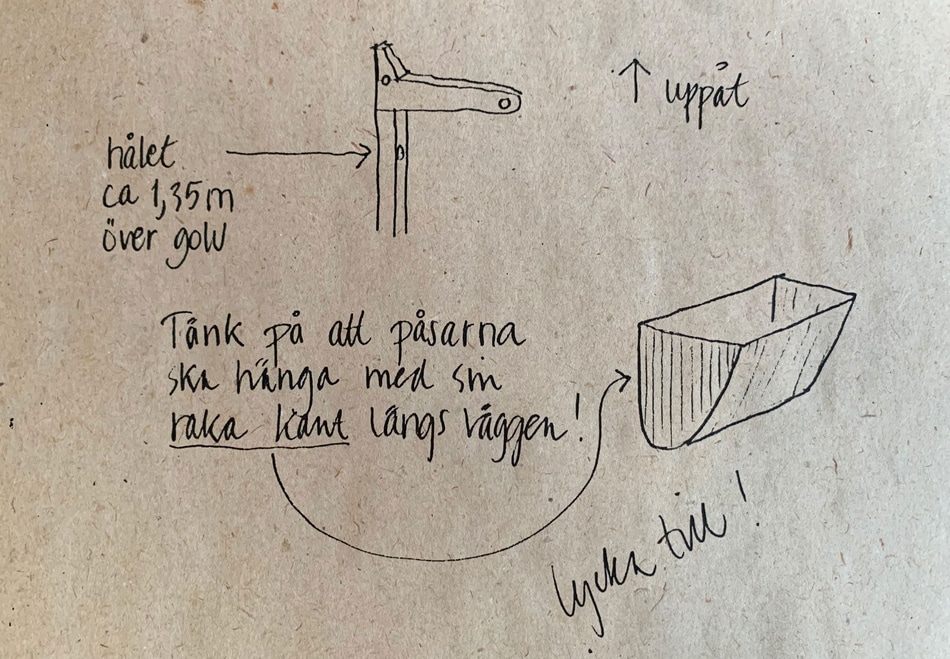 ↑ uppåt
hålet
ca 1,35 m
över golv
Tänk på att påsarna
ska hänga med sin
raka kant längs väggen!
lycka till!